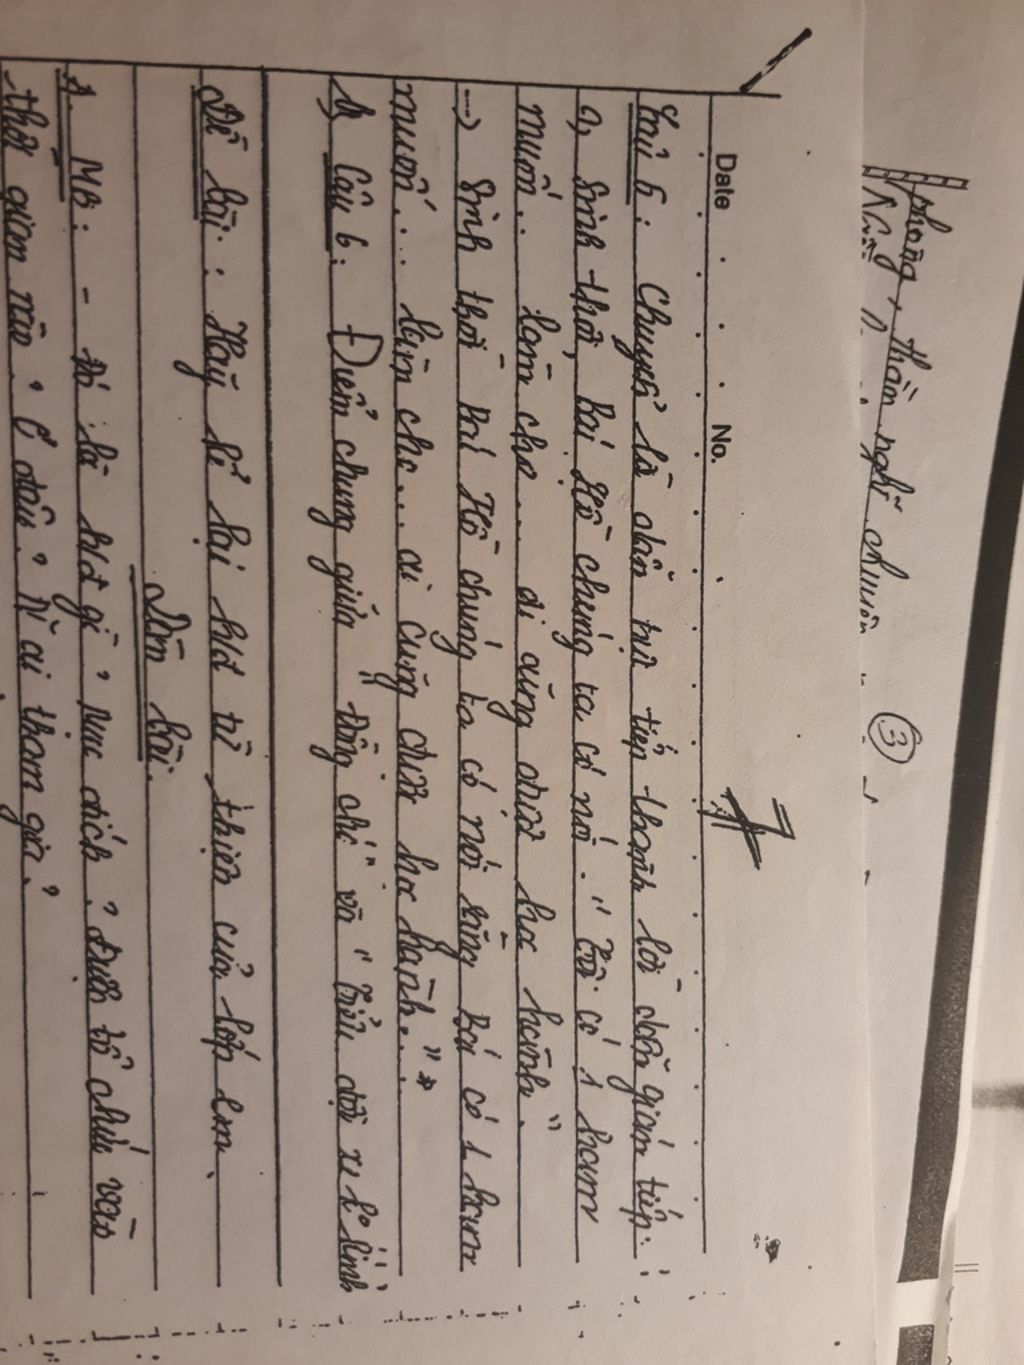 Phong, thần nghĩ chuyện
③
Date No.
7
Câu 5: Chuyển là dẫn trực tiếp thành lời dẫn gián tiếp:
a, Sinh thời, Bác Hồ chúng ta có nói: "Tôi có 1 ham
muốn... làm cho... ai cũng được học hành".
→ Sinh thời Bác Hồ chúng ta có nói rằng Bác có 1 ham
muốn... làm cho... ai cũng được học hành..."*
b, Câu 6: Điểm chung giữa "Đồng chí" và "Tiểu đội xe k° kính"
Đề bài: Hãy kể lại hđ từ thiện của lớp em.
Làm bài.
A. MB: - Đó là hđ gì? Mục đích? Được tổ chức vào
thời gian nào? Ở đâu? N~ ai tham gia?